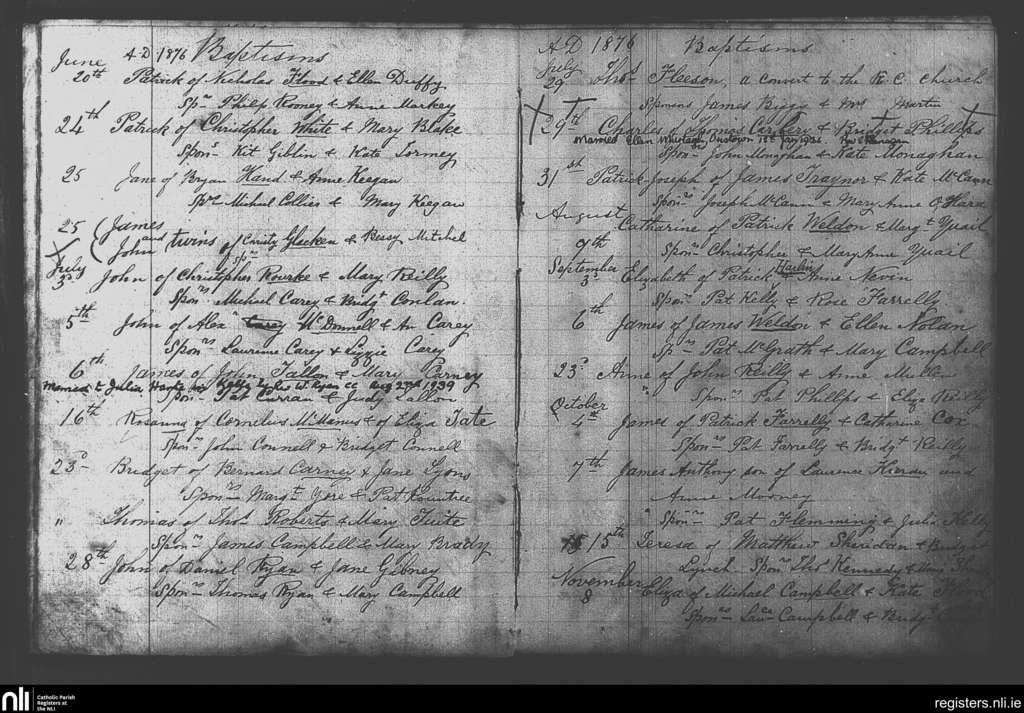 A-D 1876 Baptisms
June
20th Patrick of Nicholas Flood & Ellen Duffy
Spn Philip Rooney & Anne Markey
24th Patrick of Christopher White & Mary Blake
Spons Kit Giblin & Kate Tormey
25 Jane of Bryan Hand & Anne Keegan
Spn Michael Collier & Mary Keegan
25 James
and twins of Christy & Bessy Mitchel
John
July
3d John of Christopher Rourke & Mary Reilly
Sponrs Michael Carey & Bridgt Conlan.
5th John of Alexr Carey McDonnell & An Carey
Sponrs Laurence Carey & Lizzie Carey
6th James of John Fallon & Mary Carney
Married to Julia W. Ryan CC Aug 23rd 1939
Spon Pat Curran & Judy
16th Rosanna of Cornelius McManus & of Eliza Tate
Spon John Connell & Bridget Connell
23d Bridget of Bernard Carney & Jane Lyons
Sponrs Margt & Pat Rountree
" Thomas of Thos Roberts & Mary Tuite
Sponrs James Campbell & Mary Brady
28th John of Daniel Ryan & Jane Gibney
Sponrs Thomas Ryan & Mary Campbell
AD 1876 Baptisms
July
29 Thos Fleeson, a convert to the R.C. Church
Sponsrs James Biggs & Mrs Martin
29th Charles of Thomas & Bridget Phillips
Married Ellen Jan
Spon John Monaghan & Kate Monaghan
31st Patrick Joseph of James Traynor & Kate McCann
Sponrs Joseph McCann & Mary Anne O'Hara
August
Catharine of Patrick Weldon & Margt Quail
9th Sponrs Christopher & Mary Anne Quail
September
3d Elizabeth of Patrick Anne Nevin
Sponrs Pat Kelly & Rose Farrelly
6th James of James Weldon & Ellen Nolan
Sprs Pat McGrath & Mary Campbell
23d Anne of John Reilly & Anne
" Sponrs Pat Phillips & Eliza Reilly
October
4th James of Patrick Farrelly & Catharine Cox
Sponrs Pat Farrelly & Bridgt Reilly
7th James Anthony son of Laurence Kiernan and
Annie Mooney
" Sponrs Pat Flemming & Julia Kelly
15th Teresa of Matthew Sheridan & Bridget
Lynch Sponrs Thos Kennedy & Mary
November
8 Eliza of Michael Campbell & Kate
Sponrs Lawce Campbell & Bridgt
nli
Catholic Parish
Registers at
the NLI
registers.nli.ie